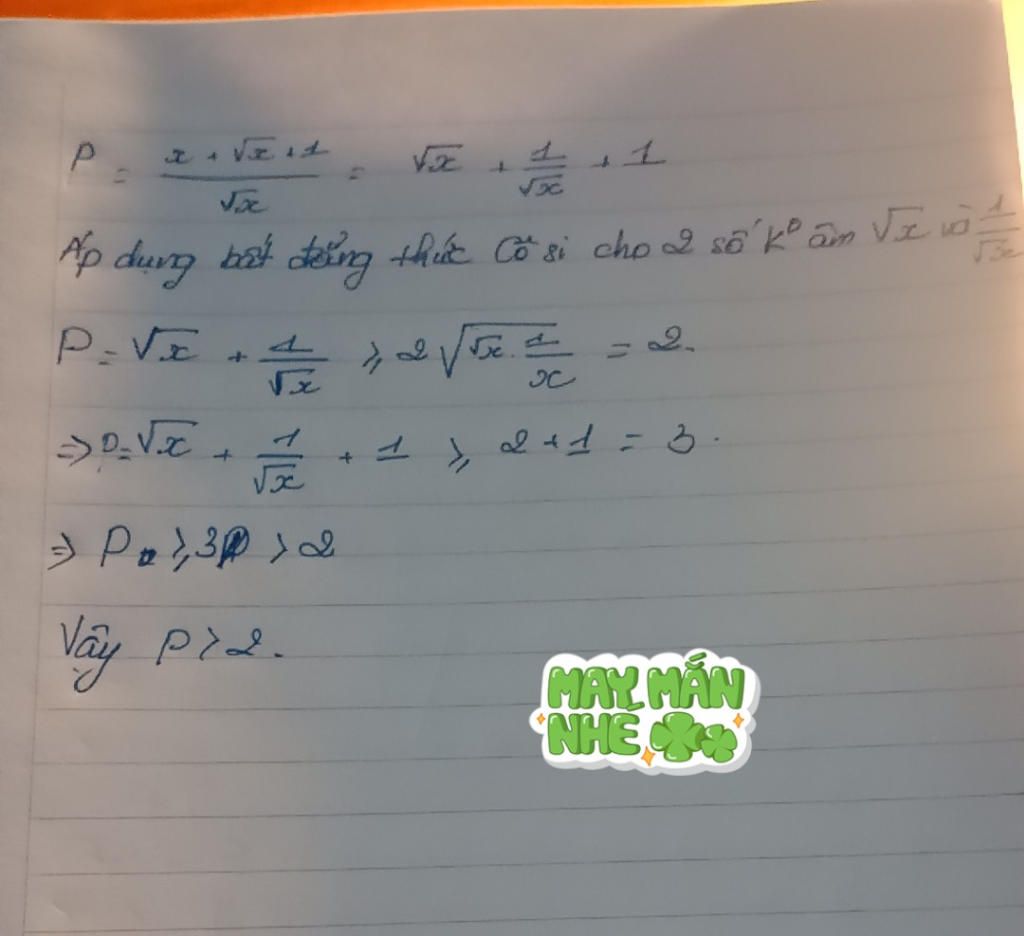 P = \frac{x + \sqrt{x} + 1}{\sqrt{x}} = \sqrt{x} + \frac{1}{\sqrt{x}} + 1
Áp dụng bất đẳng thức Cô si cho 2 số K⁰ âm \sqrt{x} và \frac{1}{\sqrt{x}}
P = \sqrt{x} + \frac{1}{\sqrt{x}} ⩾ 2\sqrt{\sqrt{x} . \frac{1}{x}} = 2.
=> P = \sqrt{x} + \frac{1}{\sqrt{x}} + 1 ⩾ 2 + 1 = 3.
=> P ⩾ 3 > 2
Vậy P > 2.
MAY MẮN
NHÉ